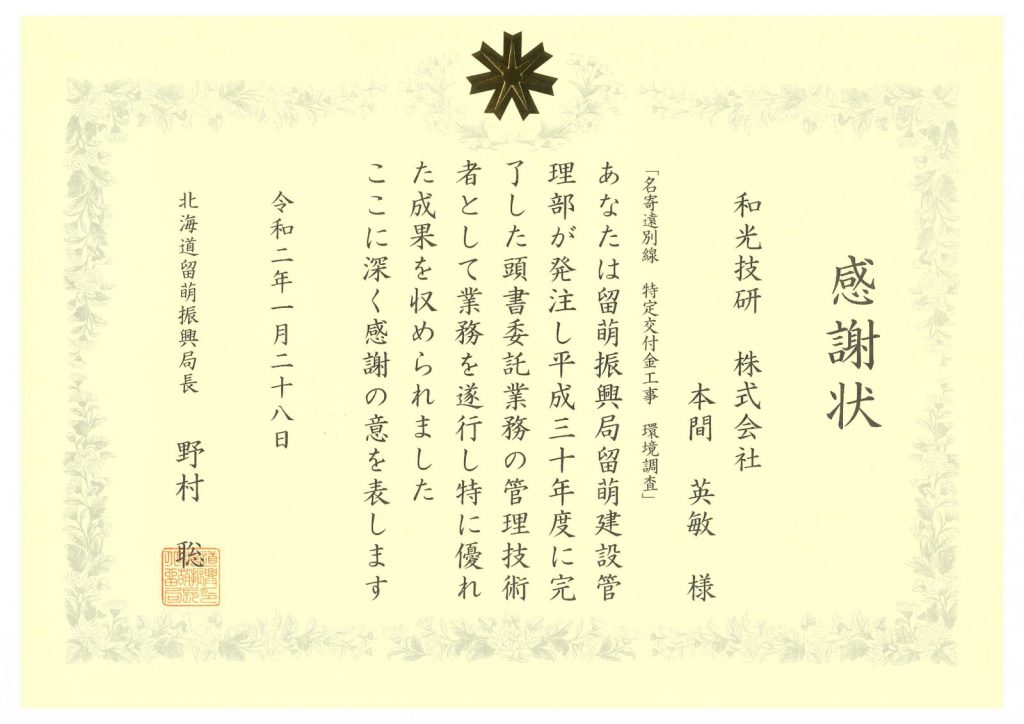 感謝状
和光技研　株式会社
本間　英敏　様
「名寄遠別線　特定交付金工事　環境調査」
あなたは留萌振興局留萌建設管
理部が発注し平成三十年度に完
了した頭書委託業務の管理技術
者として業務を遂行し特に優れ
た成果を収められました
ここに深く感謝の意を表します
令和二年一月二十八日
北海道留萌振興局長　野村　聡